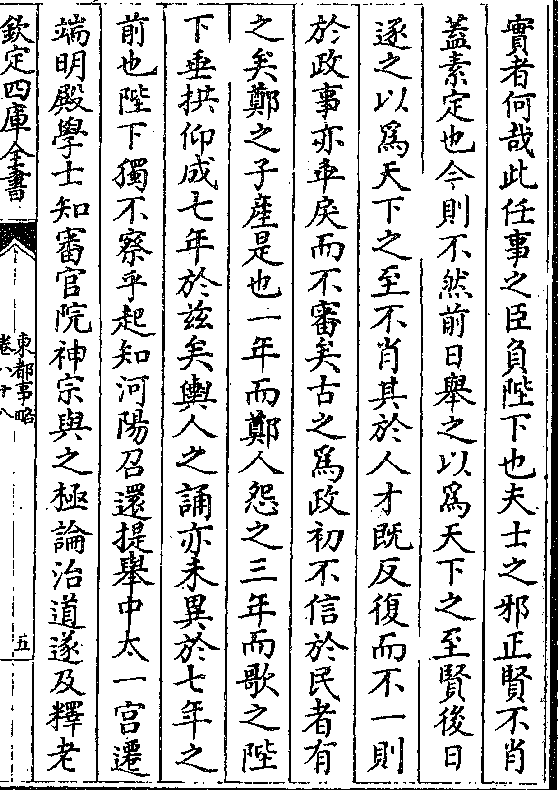 實者何哉此任事之臣負陛下也夫士之邪正賢不肖
蓋素定也今則不然前日舉之以爲天下之至賢後日
逐之以爲天下之至不肖其於人才既反復而不一則
於政事亦乖戾而不審矣古之爲政初不信於民者有
之矣鄭之子產是也一年而鄭人怨之三年而歌之陛
下垂拱仰成七年於兹矣輿人之誦亦未異於七年之
前也陛下獨不察乎起知河陽召還提舉中太一宫遷
端明殿學士知審官院神宗與之極論治道遂及釋老
欽定四庫全書
東都事略
卷八十八
五